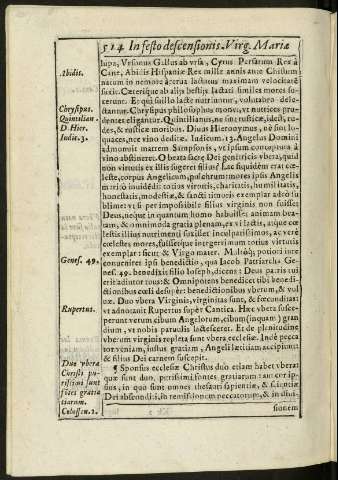 514 In festo descensionis. Virg. Mariæ
Abidis.
Chrysipus.
Quintilian.
D. Hier.
Indic. 3.
Genes. 49.
Rupertus.
Duo vbera
Christi pu-
rissimi sunt
fõtes gratia
tiarum.
Colossen. 2.
lupa, Vrsonus Gallus ab vrsa, Cyrus Persarum Rex à
Cane, Abidis Hispaniæ Rex mille annis ante Christum
natum in nemore à ceruâ lactatus maximam velocitatẽ
suxit. Cæterique ab alijs bestijs lactati similes mores so-
Et qui suillo lacte nutriuntur, volutabro dele-
ctantur. Chrysipus philosophus monuit, vt nutrices pru-
dentes eligantur. Quintilianus, ne sint rusticæ, idest, ru-
des, & rusticæ moribus. Diuus Hieronymus, nè sint lo-
quaces, nec vino deditæ. Iudicum. 13. Angelus Domini
admonuit matrem Sampsonis, vt ipsum conceptura à
vino abstineret. O beata sacræ Dei genitricis vbera, quid
non virtutis ex illis sugeret filius? Lac siquidem erat cæ-
leste, corpus Angelicum, pulcherrimi mores ipsis Angelis
meritò inuidẽdi: totius virtutis, charitatis, humilitatis,
honestatis, modestiæ, & sancti timoris exemplar adeò su
blime: vt si per impossibile filius virginis non fuisset
Deus, neque in quantum homo habuisset animam bea-
tam, & omnimoda gratia plenam, ex vi lactis, atque cæ-
lestis illius nutrimenti suxisset incolpatissimos, ac verè
cœlestes mores, fuissetque integerrimum totius virtutis
exemplar: sicut & Virgo mater. potiori iure
conueniret ipsi benedictio, qua Iacob Patriarcha Ge-
nes. 49. benedixit filio Ioseph, dicens: Deus patris tui
erit adiutor tuus: & Omnipotens benedicet tibi benedi-
ctionibus cœli desuper: benedictionibus vberum, & vul
uæ. Duo vbera Virginis, virginitas sunt, & fœcunditas:
vt adnotauit Rupertus supèr Cantica. Hæc vbera fusce-
perunt verum cibum Angelorum, cibum (inquam) gran
dium, vt nobis paruulis lactesceret. Et de plenitudine
vberum virginis repleta sunt vbera ecclesiæ. Inde pecca
tor veniam, iustus gratiam, Angeli lætitiam accipiunt,
& filius Dei carnem suscepit.
¶ Sponsus ecclesiæ Christus duo etiam habet vbera:
quæ sunt duo, purissimi fontes gratiarum: cor ip-
sius, in quo sunt omnes thesauri sapientiæ, & scientiæ
Dei absconditi, in remissionem peccatorum, & in diui-
sionem